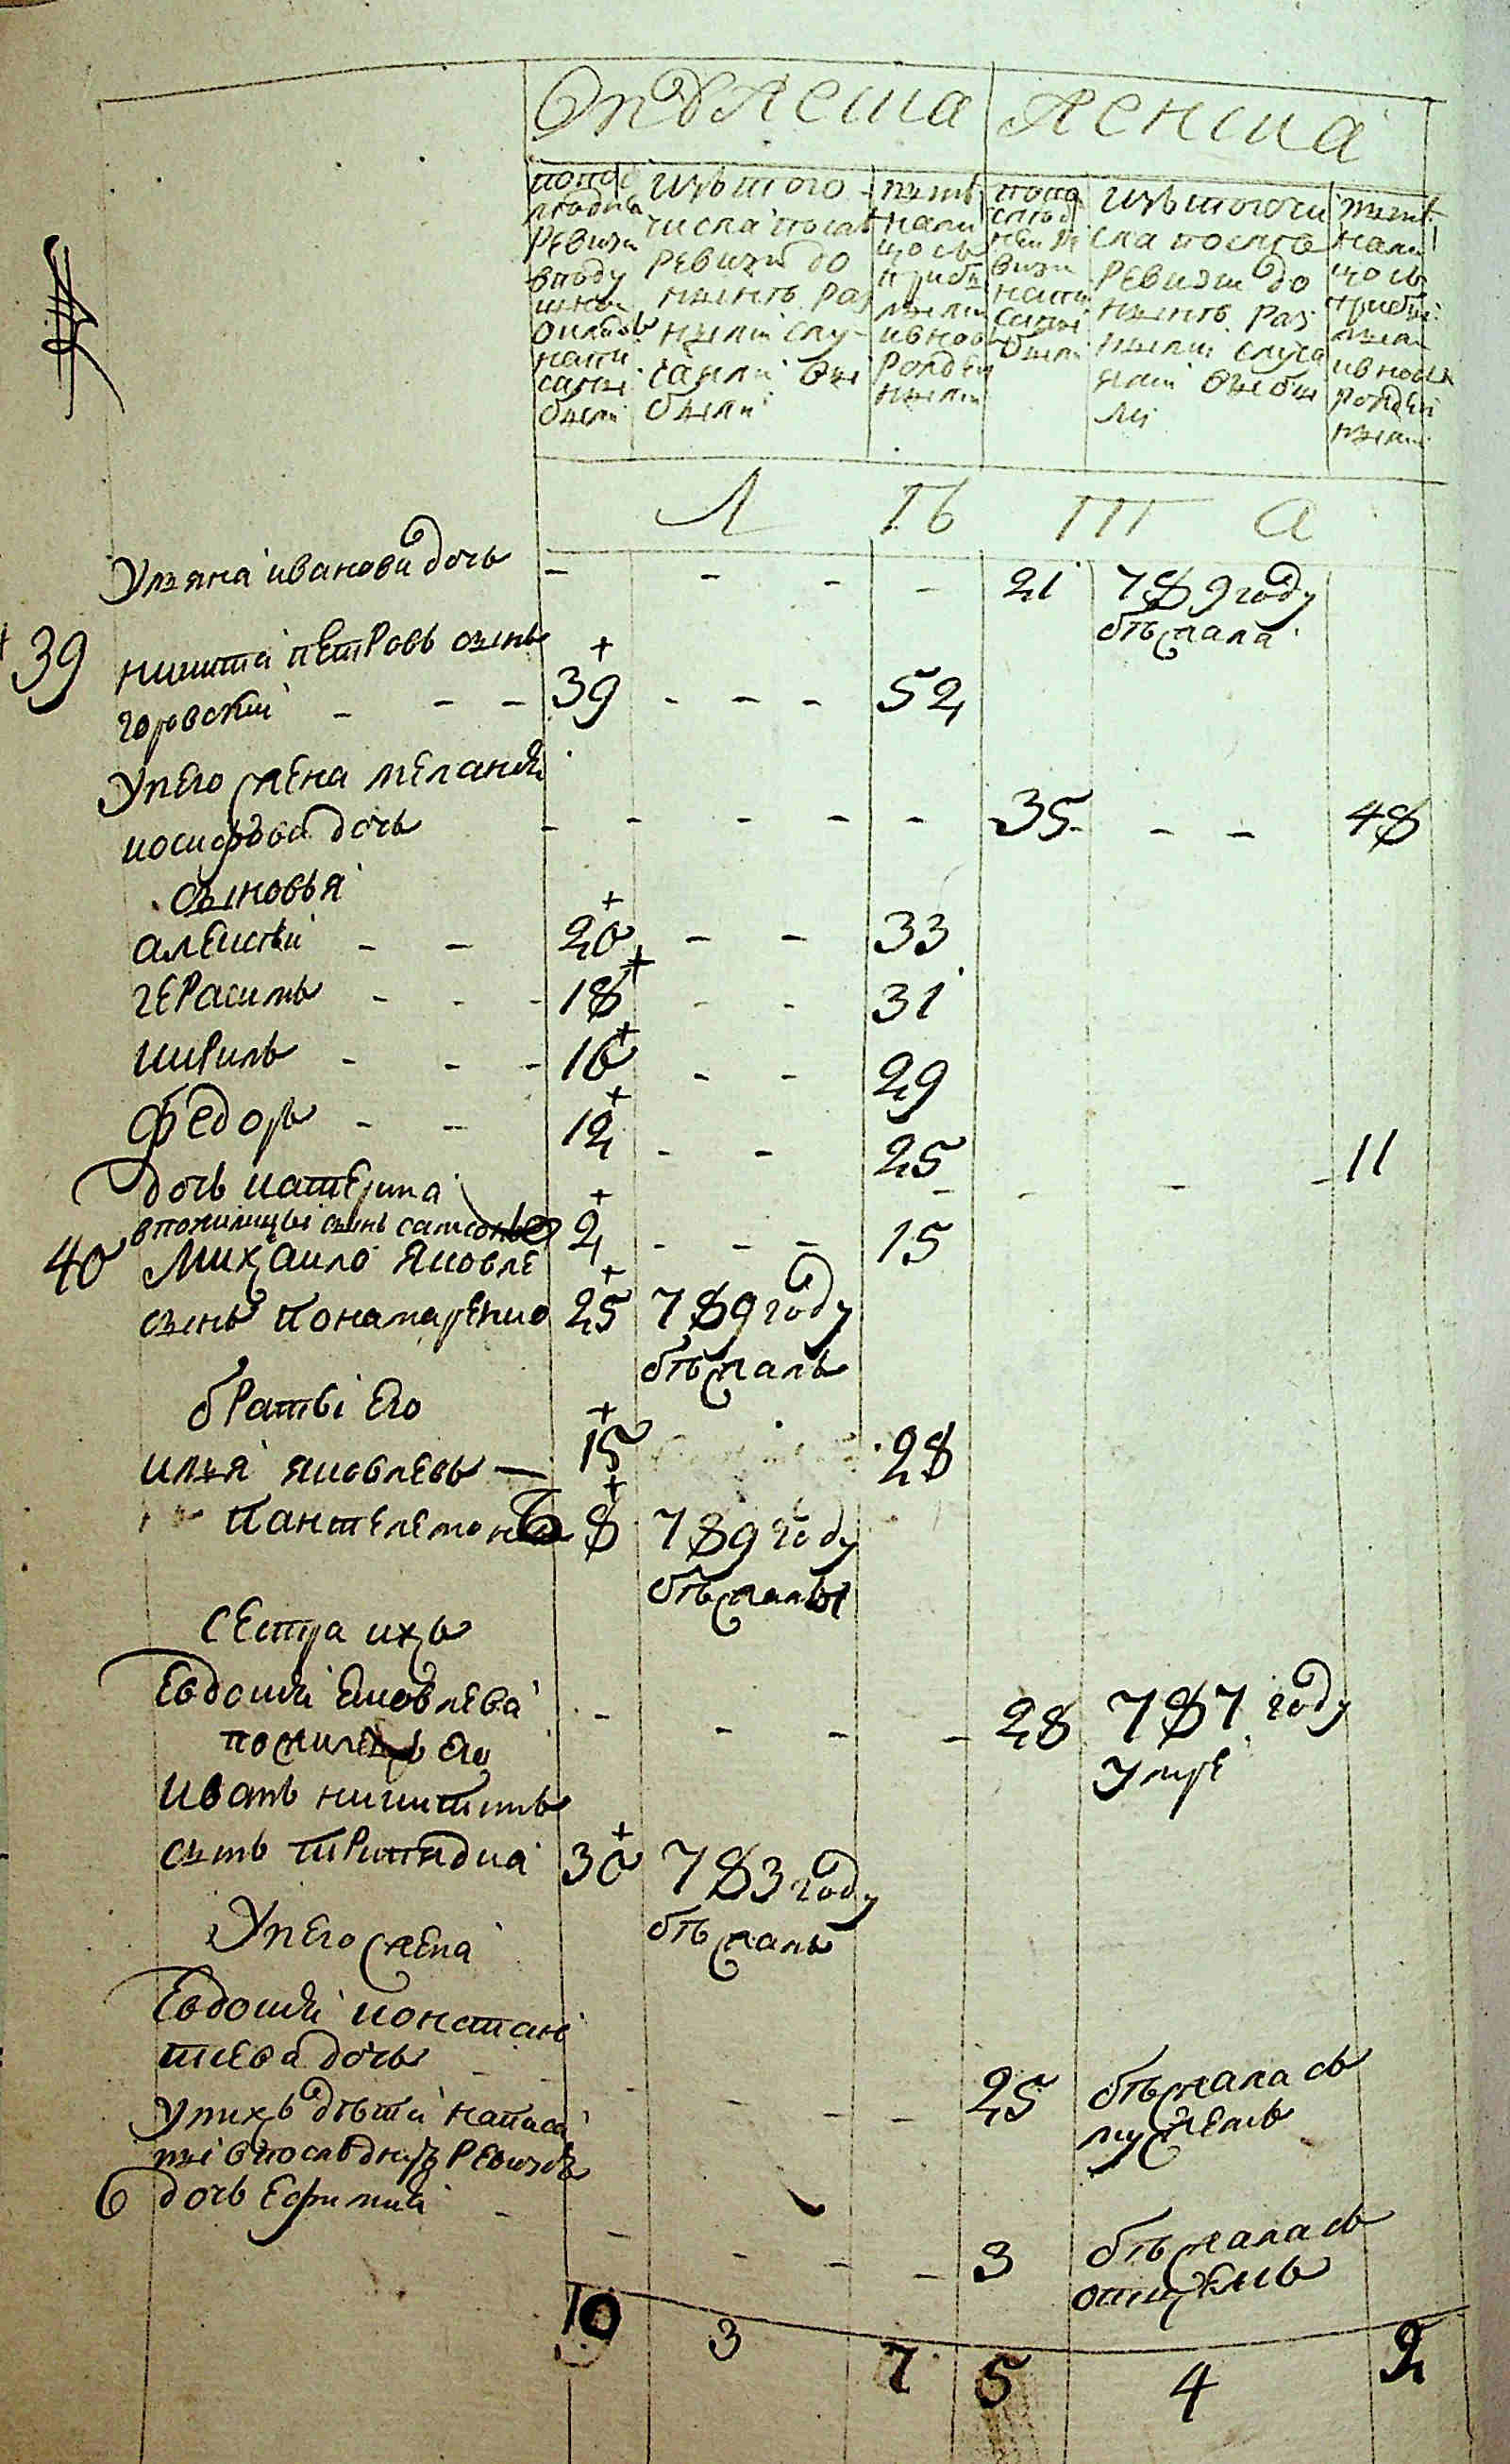 мужеска женска
попо следней ревизии вподу шной окладъ написаны были
изътого числа послѣ ревизии до ныне разными случаями выбыли
ныне налицо съ прибылыми ивновь рожденными
попо следней ревизии написаны были
изътого числа послѣ ревизии до ныне разными случаями выбыли
ныне налицо съ прибылыми ивновь рожденными
Л ѣ т а
Ульяна иванова дочь - - - - 21 789 году
бѣжала
39 никита петровъ сынъ +
горовский - - - 39 - - - 52
Унего жена меланья
иосифова дочь - - - - - 35 - - 48
сыновья
алексѣй - - 20 + - - 33
герасимъ - - - 18 + - - 31
кирилъ - - - 16 + - - 29
федоръ - - 12 + - - 25
дочь катерина - - - - 11
впожилцы сынъ самсонъ 2 + - - - 15
40 Михайло яковле
сынъ понамаренко 25 + 789 году
бѣжалъ
братьі его
илья яковлевъ — 15 + 28
пантелемонъ 8 + 789 году
бѣжалъ
сестра ихъ
Евдокия яковлева - - - - 28 787 году
пожилецъ его умре
Иванъ никитинъ
сынъ 30 + 783 году
Унего жена бѣжалъ
Евдокия констан
тиева дочь - - - - 25 бѣжала съ
мужемъ
унихъ дѣти написа
ны впоследней ревизіи
6 дочь Ефимия - - - - - 3 бѣжала съ
отцемъ
10 3 7 5 4 2